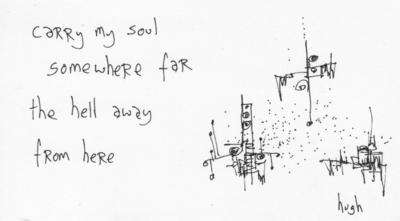 carry my soul
somewhere far
the hell away
from here
hugh